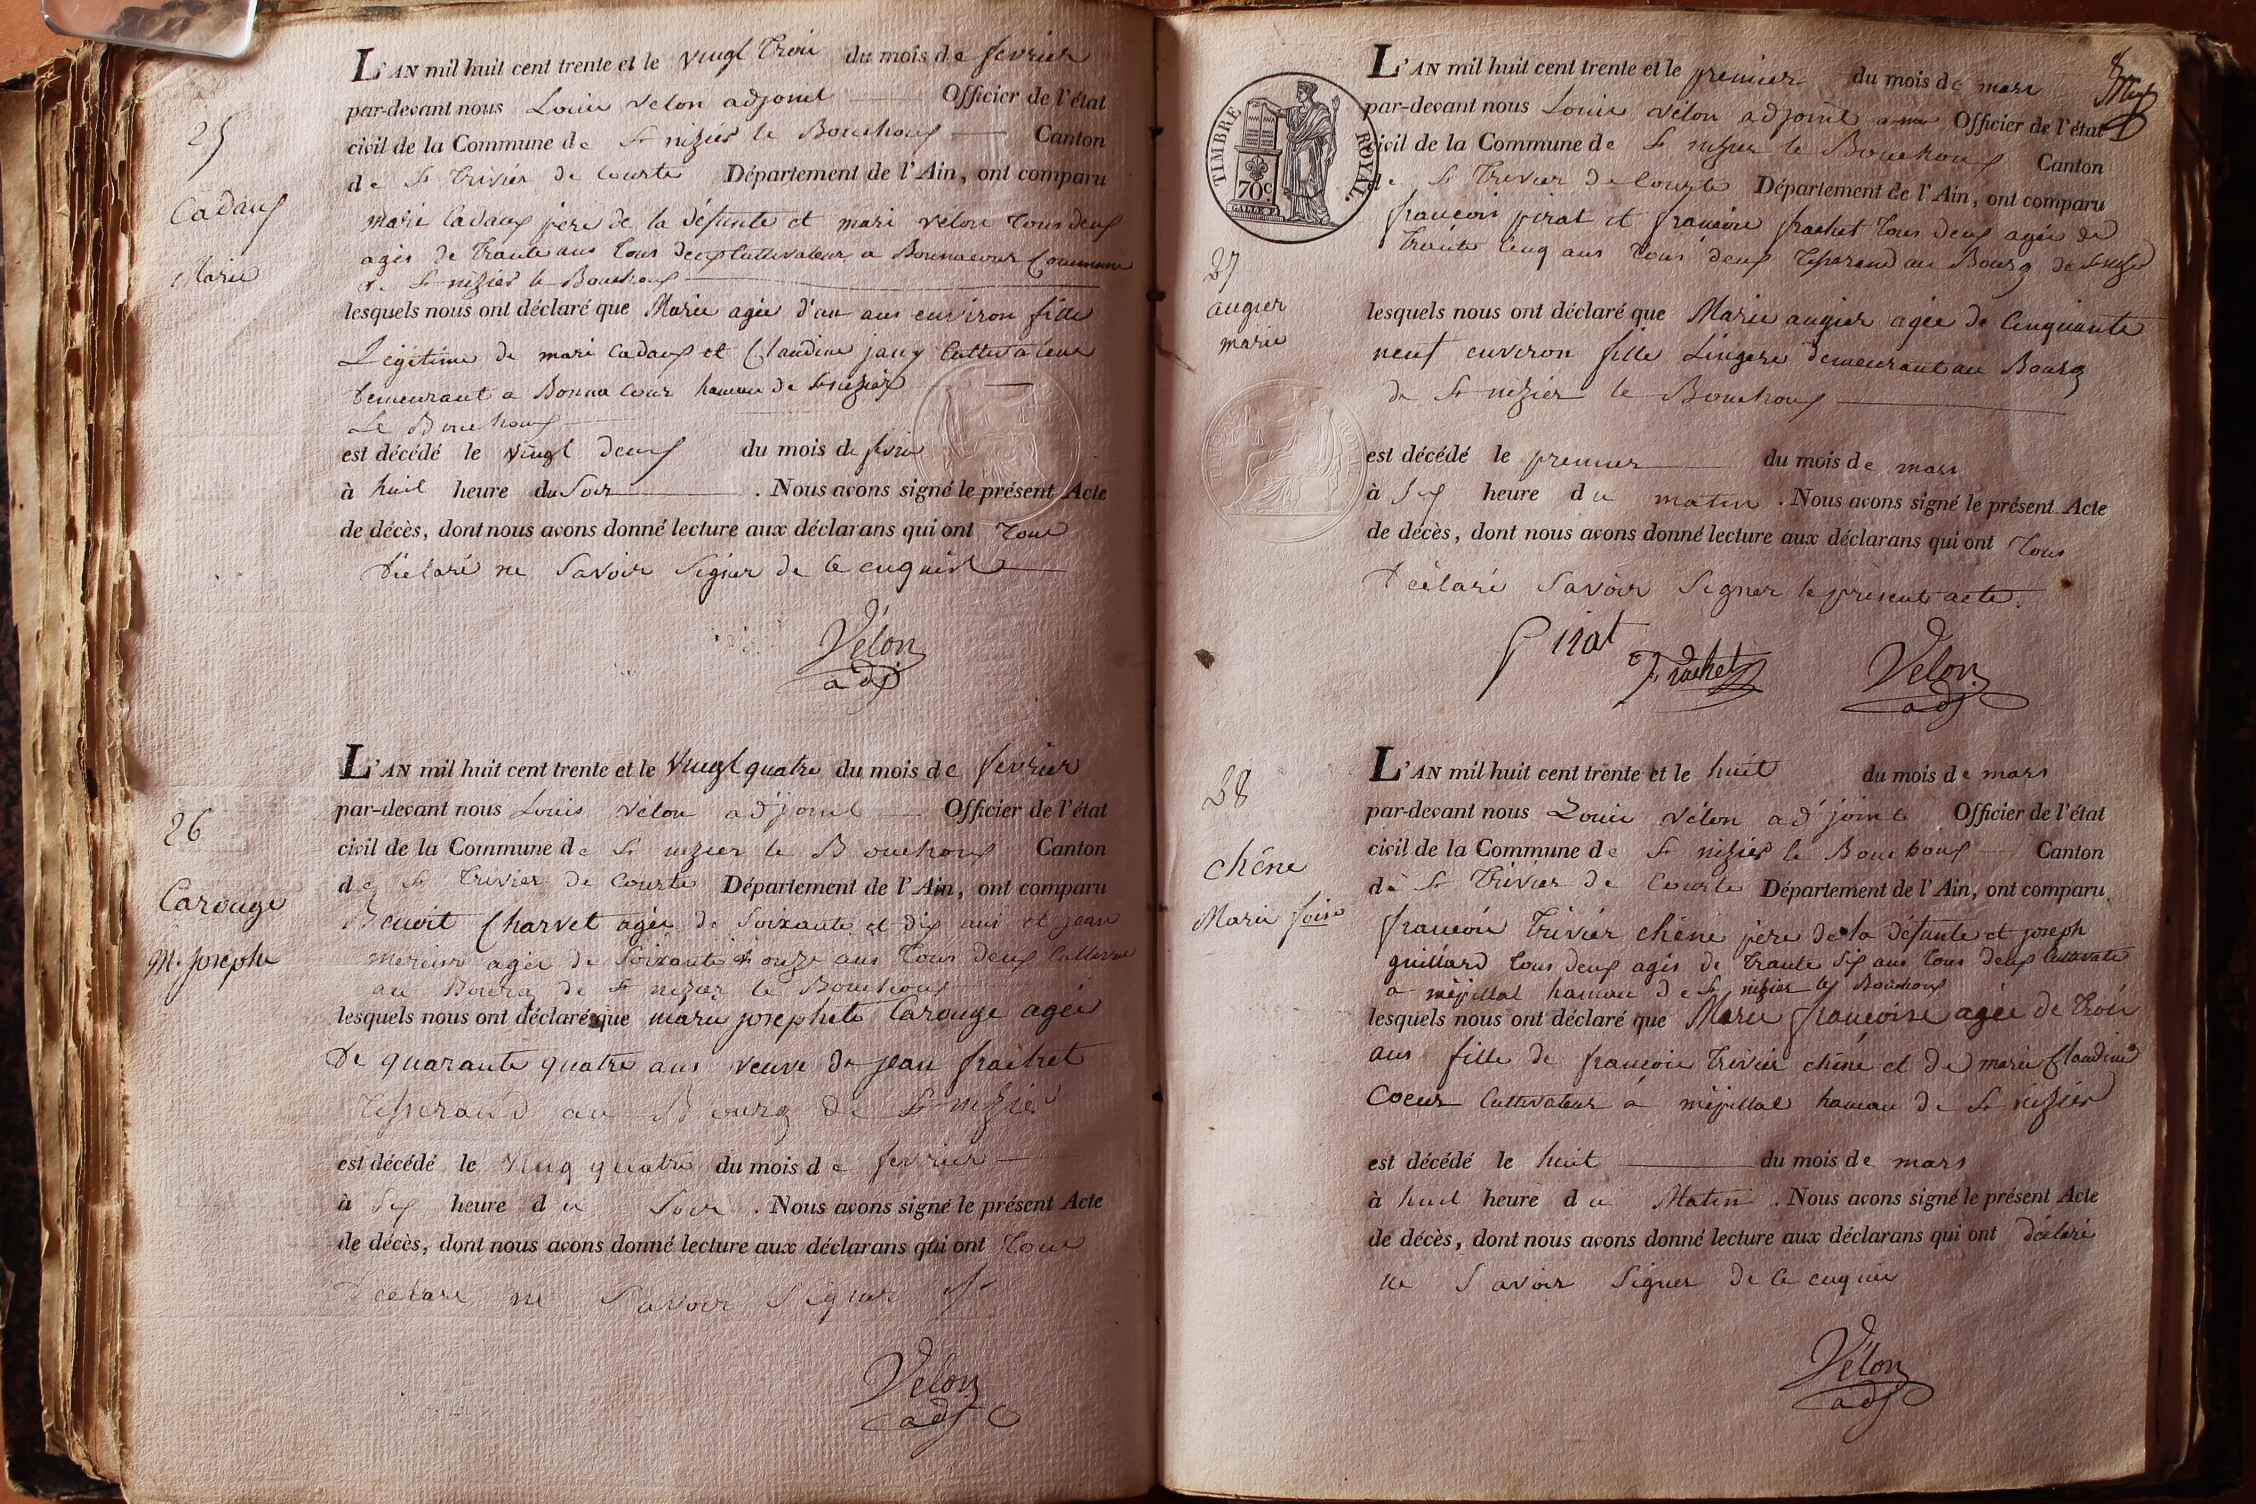 25
Cadaux
Marie
L'AN mil huit cent trente et le vingt trois du mois de fevrier
par-devant nous Louis Velon adjoint Officier de l'état
civil de la Commune de St nizier le Bouchoux Canton
de St Trivier de Courte Département de l'Ain, ont comparu
mari Cadaux pere de la défunte et mari velon tous deux
agés de trante ans tous deux Cultivateur a Bonnacour Commune
de St nizier le Bouchoux
lesquels nous ont déclaré que Marie agée d'un ans environ fille
Légitime de mari Cadaux et Claudine jany Cultivateur
Demeurant a Bonna cour hameau de St nizier
Le Bouchoux
est décédé le vingt deux du mois de fevrier
à huit heure du Soir . Nous avons signé le présent Acte
de décès, dont nous avons donné lecture aux déclarans qui ont tous
Déclaré ne Savoir Signer de ce enquis
Vélon
adj
26
Carouge
M. Josephe
L'AN mil huit cent trente et le vingt quatre du mois de fevrier
par-devant nous Louis Vélon adjoint Officier de l'état
civil de la Commune de St nizier le Bouchoux Canton
de St Trivier de Courte Département de l'Ain, ont comparu
Benoit Charvet agée de Soixante et dix ans et jean
mercier agée de Soixante et onze ans tous deux
au Bourg de St nizier le Bouchoux
lesquels nous ont déclaré que marie josephete Carouge agée
De quarante quatre ans veuve de jean frachet
Tisserand au Bourg de St nizier
est décédé le ving quatre du mois de fevrier
à Six heure du Soir . Nous avons signé le présent Acte
de décès, dont nous avons donné lecture aux déclarans qui ont tous
Déclaré ne Savoir Signer
Velon
adj
TIMBRE ROYAL.
70c.
L'AN mil huit cent trente et le premier du mois de mars
par-devant nous Louis Vélon adjoint Officier de l'état
civil de la Commune de St nizier le Bouchoux Canton
de St Trivier de Courte Département de l'Ain, ont comparu
françois pirat et françois frachet tous deux agés de
trante cinq ans tous deux Tisserand au Bourg de St nizier
27
augier
marie
lesquels nous ont déclaré que Marie augier agée de Cinquante
neuf environ fille Lingere demeurant au Bourg
de St nizier le Bouchoux
est décédé le premier du mois de mars
à Six heure du matin . Nous avons signé le présent Acte
de décès, dont nous avons donné lecture aux déclarans qui ont tous
Déclaré Savoir Signer le présent acte.
Pirat Frachet Velon
adj
28
Chêne
Marie foise
L'AN mil huit cent trente et le huit du mois de mars
par-devant nous Louis Vélon adjoint Officier de l'état
civil de la Commune de St nizier le Bouchoux Canton
de St Trivier de Courte Département de l'Ain, ont comparu
françois Trivier chêne pere de la défunte et joseph
guillard tous deux agés de trante Six ans tous deux Cultivate
a mépillat hameau de St nizier le Bouchoux
lesquels nous ont déclaré que Marie françoise agée de trois
ans fille de françois Trivier chêne et de marie Claudine
Coeur Cultivateur a mépillat hameau de St nizier
est décédé le huit du mois de mars
à huit heure du Matin . Nous avons signé le présent Acte
de décès, dont nous avons donné lecture aux déclarans qui ont déclaré
ne Savoir Signer de ce enquis
Vélon
adj